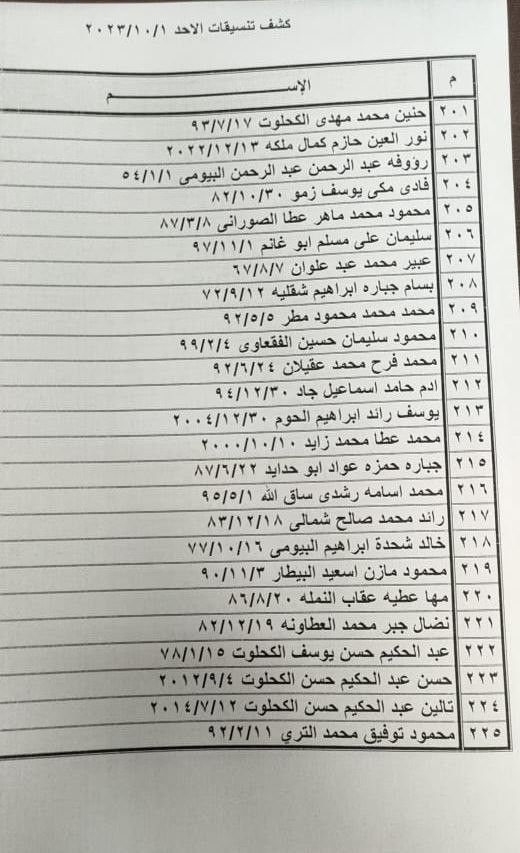 كشف تنسيقات الاحد ٢٠٢٣/١٠/١
م الإســـــــم
٢٠١ حنين محمد مهدى الكحلوت ٩٣/٧/١٧
٢٠٢ نور العين حازم كمال ملكه ٢٠٢٢/١٢/١٣
٢٠٣ رؤوفه عبد الرحمن عبد الرحمن البيومى ٥٤/١/١
٢٠٤ فادى مكى يوسف زمو ٨٢/١٠/٣٠
٢٠٥ محمود محمد ماهر عطا الصورانى ٨٧/٣/٨
٢٠٦ سليمان على مسلم ابو غانم ٩٧/١١/١
٢٠٧ عبير محمد عبد علوان ٦٧/٨/٧
٢٠٨ بسام جباره ابراهيم شقليه ٧٢/٩/١٢
٢٠٩ محمد محمد محمود مطر ٩٢/٥/٥
٢١٠ محمود سليمان حسين الفقعاوى ٩٩/٢/٤
٢١١ محمد فرح محمد عقيلان ٩٢/٦/٢٤
٢١٢ ادم حامد اسماعيل جاد ٩٤/١٢/٣٠
٢١٣ يوسف رائد ابراهيم الحوم ٢٠٠٤/١٢/٣٠
٢١٤ محمد عطا محمد زايد ٢٠٠٠/١٠/١٠
٢١٥ جباره حمزه عواد ابو حدايد ٨٧/٦/٢٢
٢١٦ محمد اسامه رشدى ساق الله ٩٥/٥/١
٢١٧ رائد محمد صالح شمالى ٨٣/١٢/١٨
٢١٨ خالد شحدة ابراهيم البيومى ٧٧/١٠/١٦
٢١٩ محمود مازن اسعيد البيطار ٩٠/١١/٣
٢٢٠ مها عطيه عقاب النمله ٨٦/٨/٢٠
٢٢١ نضال جبر محمد العطاونه ٨٢/١٢/١٩
٢٢٢ عبد الحكيم حسن يوسف الكحلوت ٧٨/١/١٥
٢٢٣ حسن عبد الحكيم حسن الكحلوت ٢٠١٢/٩/٤
٢٢٤ تالين عبد الحكيم حسن الكحلوت ٢٠١٤/٧/١٢
٢٢٥ محمود توفيق محمد التري ٩٢/٢/١١